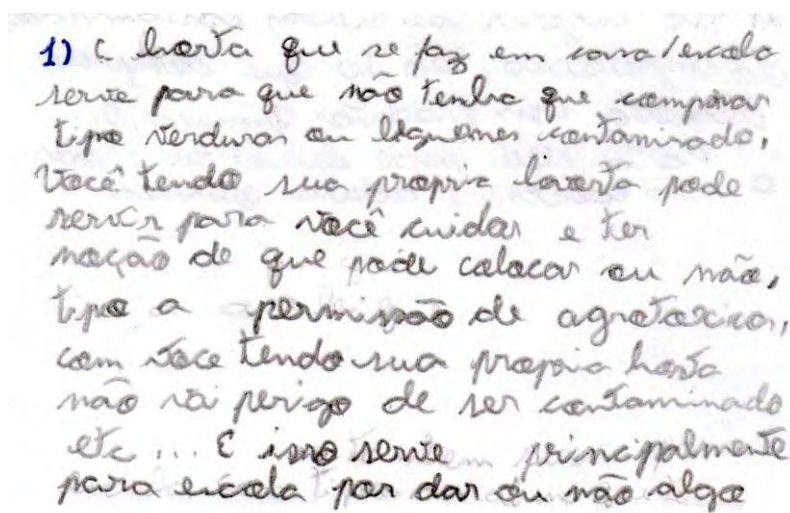 1) A horta que se faz em casa/escola
serve para que não tenha que comprar
tipo verduras ou legumes contaminado,
Você tendo sua propria horta pode
servir para você cuidar e ter
noção de que pode colocar ou não,
tipo a permissão de agrotoxico,
com voce tendo sua propria horta
não vai perigo de ser contaminado
etc ... E isso serve principalmente
para escola por dar ou não algo